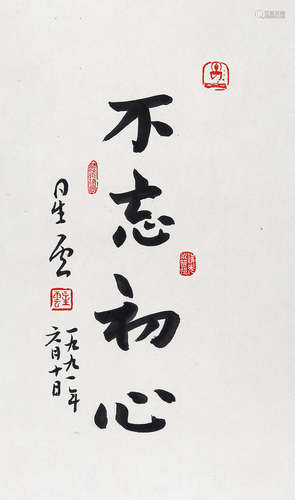 不忘初心
星云
一九九一年
六月十日